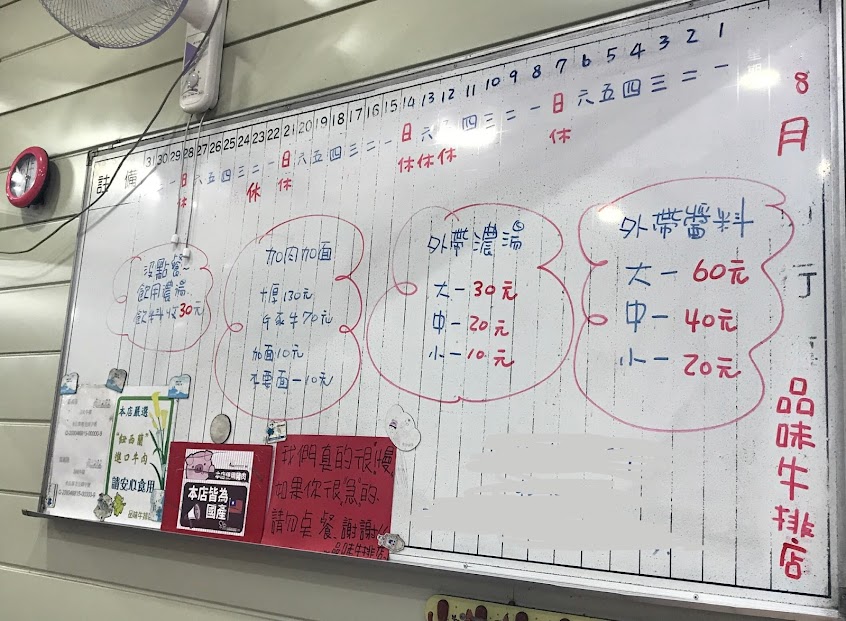 8月
品味牛排店
1 2 3 4 5 6 7 8 9 10 11 12 13 14 15 16 17 18 19 20 21 22 23 24 25 26 27 28 29 30 31
一 二 三 四 五 六 日 一 二 三 四 五 六 日 一 二 三 四 五 六 日 一 二 三 四 五 六 日 一
休 休 休 休 休 休 休
註 備
外帶醬料
大一 60元
中一 40元
小一 20元
外帶濃湯
大一 30元
中一 20元
小一 10元
加肉加面
130元
牛 70元
加面10元
不要面一10元
沒點餐~
飲用濃湯
飲料收30元
本店嚴選
"紐西蘭"
進口牛肉
請安心食用
品味牛排
本店使用豬肉
本店皆為
國產
我們真的很慢
如果你很急的
請勿桌餐 謝謝
~品味牛排店